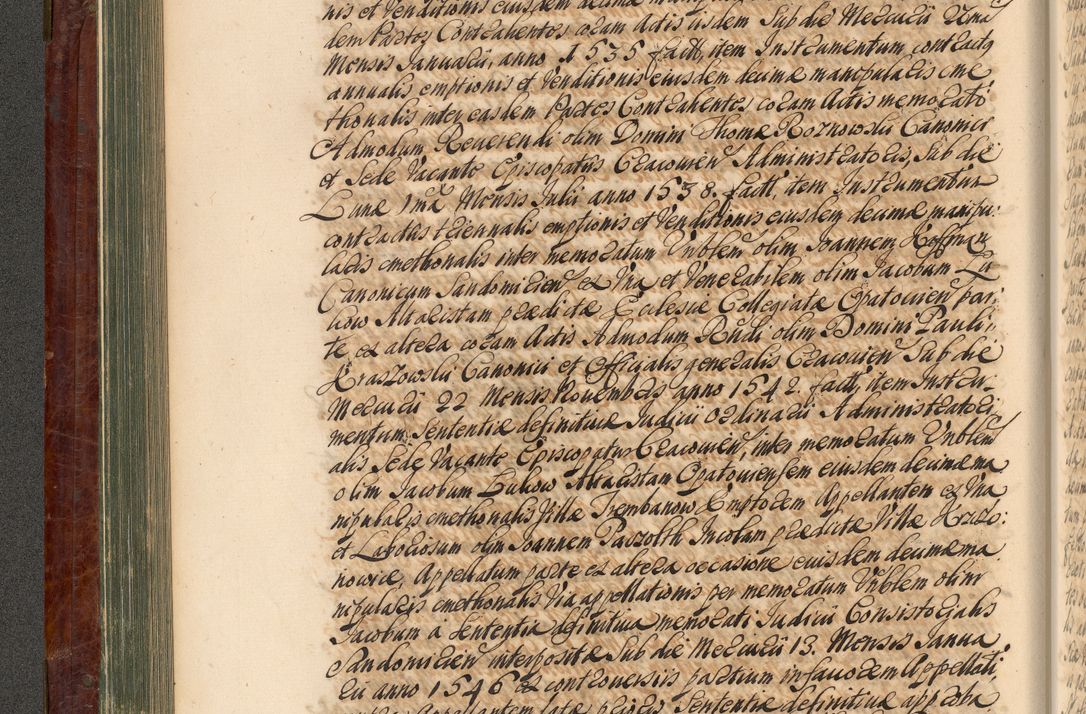 nis et Venditionis eiusdem decimæ
dem Partes Contrahentes coram Actis iisdem Sub die Mercurii 2 da
Mensis Januarii, anno 1535 facti, item Instrumentum contractus
annualis emptionis et Venditionis eiusdem decimæ manipularis cme
thonalis inter easdem Partes Contrahentes coram Actis memorato
Admodum Reverendi olim Domini Thomæ Roznowski Canonici
et Sede Vacante Episcopatus Cracovien Administratoris, Sub die
Lunæ 1mæ Mensis Julii anno 1538. facti, item Instrumentum
contractus triennalis emptionis et Venditionis eiusdem decimæ manipu:
laris cmethonalis inter memoratum Vnblem olim Joannem Hoffman
Canonicum Sandomirien ex Vna, et Venerabilem olim Jacobum Lu
kow Altaristam prædictæ Ecclesiæ Collegiatæ Opatovien par
te ex altera coram Actis Admodum Rndi olim Domini Pauli
Kraszowski Canonici et Officialis generalis Cracovien Sub die
Mercurii 22 Mensis Novembris anno 1542. facti, item Instru
mentum Sententiæ definitivæ Judicii Ordinarii Administratori
alis Sede Vacante Episcopatus Cracovien, inter memoratum Vnblem
olim Jacobum Lukow Altaristam Opatoviensem eiusdem decimæ ma
nipularis cmethonalis Villæ Trembanow Emptorem Appellantem ex Vna
et Laboriosum olim Joannem Paszolth Incolam prædictæ Villæ Krzlo:
nowice, Appellatum parte ex altera occasione eiusdem decimæ ma
nipularis cmethonalis Via appellationis per memoratum Vnblem olim
Jacobum a Sententia definitiva memorati Judicii Consistorialis
Sandomirien interpositæ Sub die Mercurii 13. Mensis Janua
rii anno 1546 ex controversiis partium in favorem Appellati
Appellantem latæ prioris Sententiæ definitivæ approba